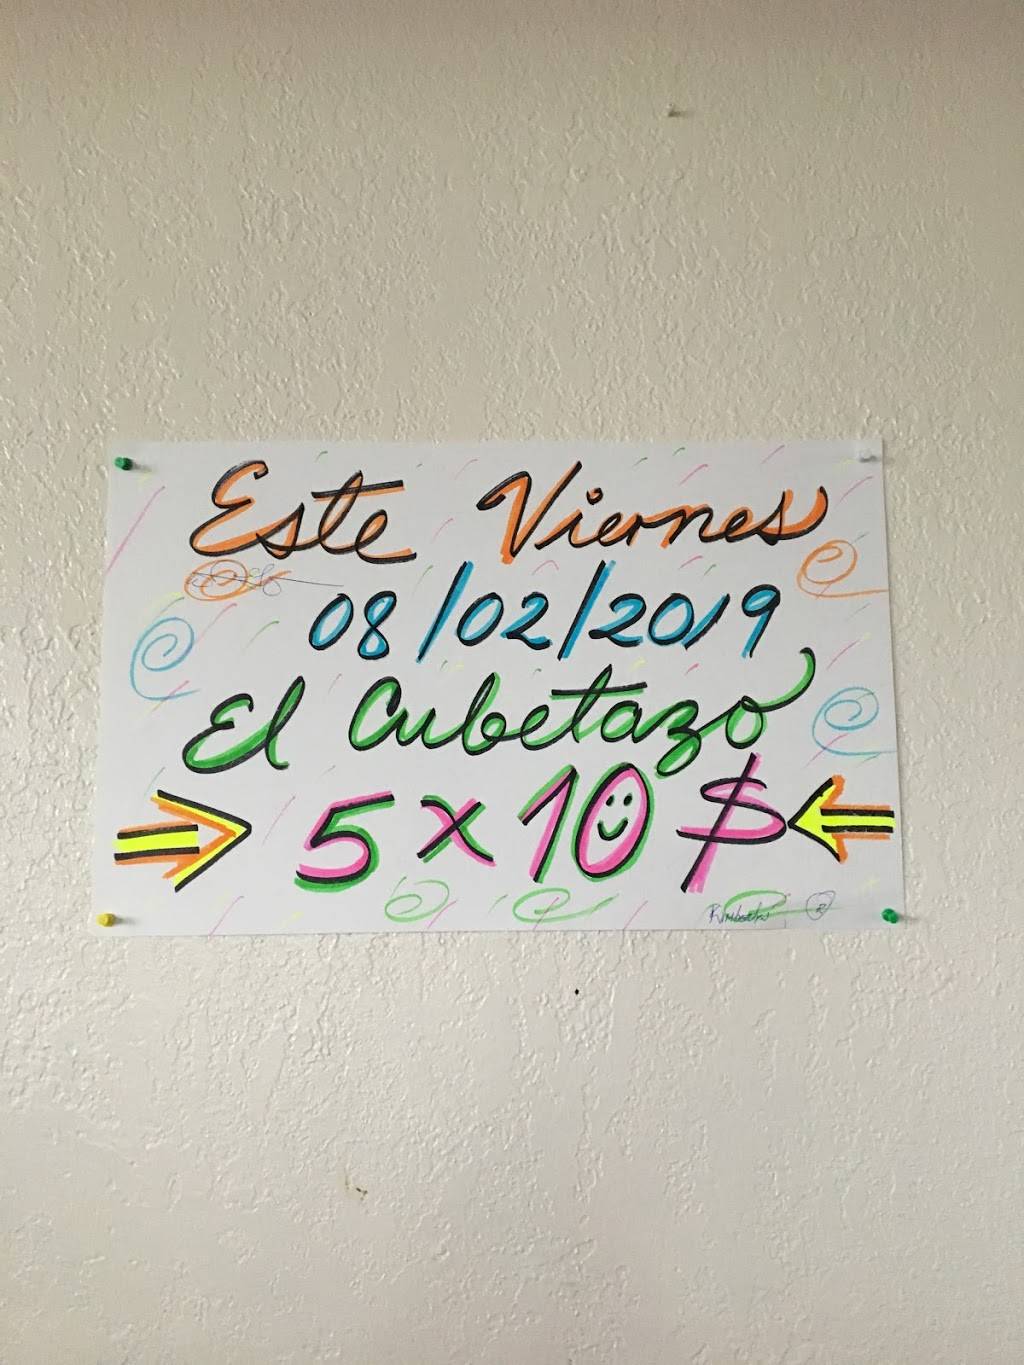 Este Viernes
08/02/2019
El Cubetazo
5 x 10 $